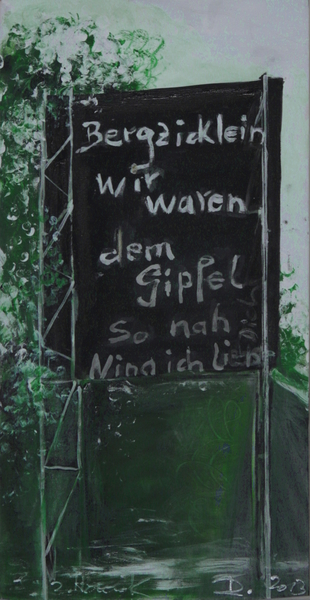 Bergzicklein
wir
waren
dem
Gipfel
so nah
Nina ich liebe
D. 2013